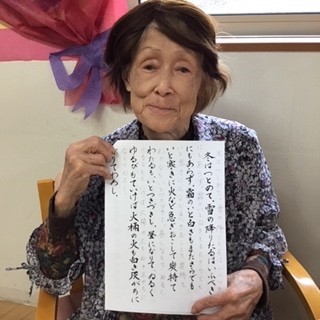 冬はつとめて、雪の降りたるは、いふべき
にもあらず、霜のいと白きもまたさらでも
いと寒きに火など急ぎおこして炭持て
わたるも、いとつきづきし、昼になりてぬるく
ゆるびもていけば、火桶の火も白き灰がちに
わろし。